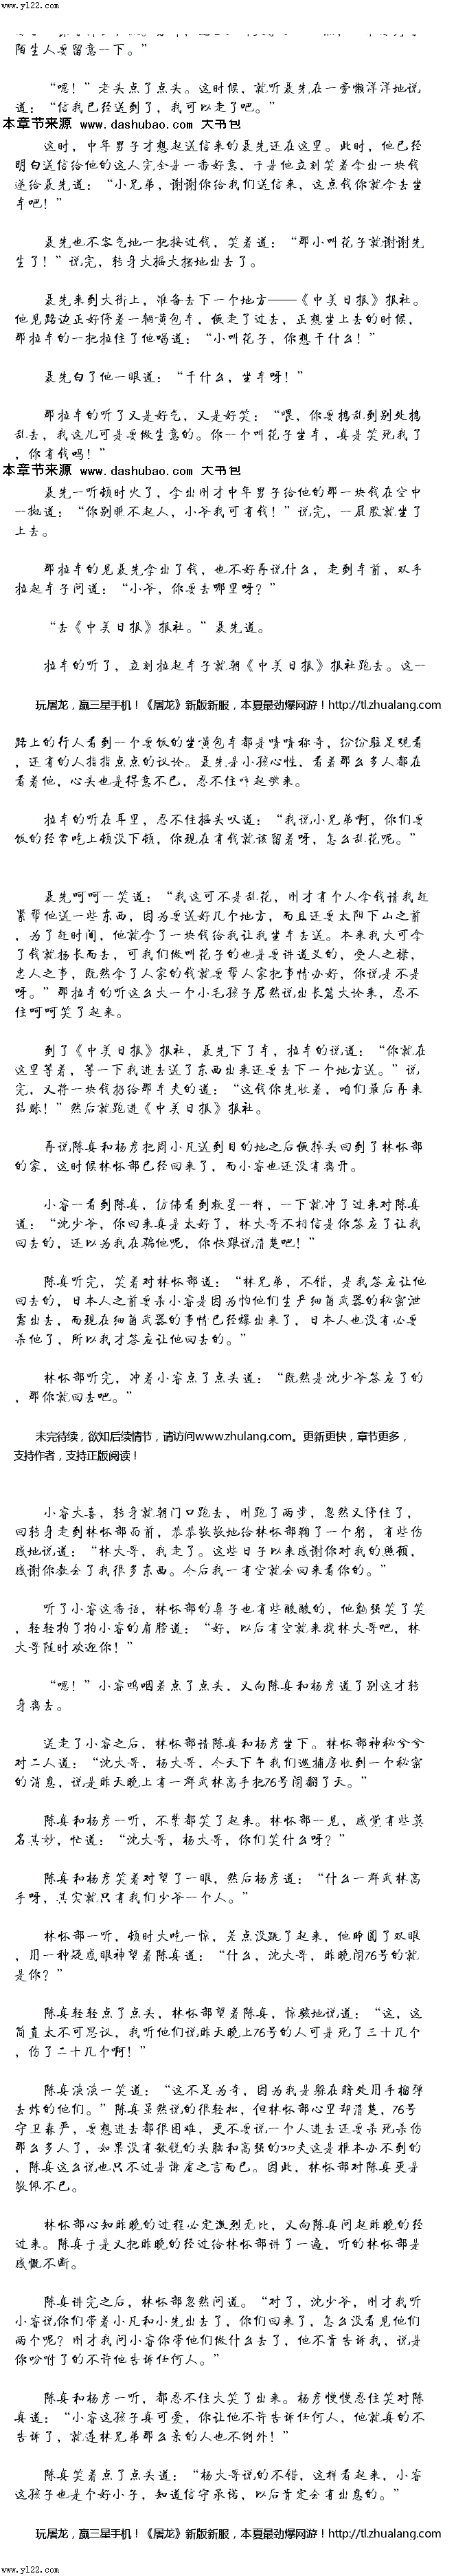 www.yl22.com
陌生人要留意一下。”
“嗯！”老头点了点头。这时候，就听聂先在一旁懒洋洋地说
道：“信我已经送到了，我可以走了吧。”
本章节来源 www.dashubao.com 大书包
这时，中年男子才想起送信来的聂先还在这里。此时，他已经
明白送信给他的这人完全是一番好意，于是他立刻笑着拿出一块钱
递给聂先道：“小兄弟，谢谢你给我们送信来，这点钱你就拿去坐
车吧！”
聂先也不客气地一把接过钱，笑着道：“那小叫花子就谢谢先
生了！”说完，转身大摇大摆地出去了。
聂先来到大街上，准备去下一个地方——《中美日报》报社。
他见路边正好停着一辆黄包车，便走了过去，正想坐上去的时候，
那拉车的一把拉住了他喝道：“小叫花子，你想干什么！”
聂先白了他一眼道：“干什么，坐车呀！”
那拉车的听了又是好气，又是好笑：“喂，你要捣乱到别处捣
乱去，我这儿可是要做生意的。你一个叫花子坐车，真是笑死我了
，你有钱吗！”
本章节来源 www.dashubao.com 大书包
聂先一听顿时火了，拿出刚才中年男子给他的那一块钱在空中
一抛道：“你别瞧不起人，小爷我可有钱！”说完，一屁股就坐了
上去。
那拉车的见聂先拿出了钱，也不好再说什么，走到车前，双手
拉起车子问道：“小爷，你要去哪里呀？”
“去《中美日报》报社。”聂先道。
拉车的听了，立刻拉起车子就朝《中美日报》报社跑去。这一
玩屠龙，赢三星手机！《屠龙》新版新服，本夏最劲爆网游！http://tl.zhualang.com
路上的行人看到一个要饭的坐黄包车都是啧啧称奇，纷纷驻足观看
，还有的人指指点点的议论。聂先是小孩心性，看着那么多人都在
看着他，心头也是得意不已，忍不住哼起歌来。
拉车的听在耳里，忍不住摇头叹道：“我说小兄弟啊，你们要
饭的经常吃上顿没下顿，你现在有钱就该留着呀，怎么乱花呢。”
聂先呵呵一笑道：“我这可不是乱花，刚才有个人拿钱请我赶
紧帮他送一些东西，因为要送好几个地方，而且还要太阳下山之前
，为了赶时间，他就拿了一块钱给我让我坐车去送。本来我大可拿
了钱就扬长而去，可我们做叫花子的也是要讲道义的，受人之禄，
忠人之事，既然拿了人家的钱就要帮人家把事情办好，你说是不是
呀。”那拉车的听这么大一个小毛孩子居然说出长篇大论来，忍不
住呵呵笑了起来。
到了《中美日报》报社，聂先下了车，拉车的说道：“你就在
这里等着，等一下我进去送了东西出来还要去下一个地方送。”说
完，又将一块钱扔给那车夫的道：“这钱你先收着，咱们最后再来
结账！”然后就跑进《中美日报》报社。
再说陈真和杨彦把周小凡送到目的地之后便掉头回到了林怀部
的家，这时候林怀部已经回来了，而小睿也还没有离开。
小睿一看到陈真，仿佛看到救星一样，一下就冲了过来对陈真
道：“沈少爷，你回来真是太好了，林大哥不相信是你答应了让我
回去的，还以为我在骗他呢，你快跟说清楚吧！”
陈真听完，笑着对林怀部道：“林兄弟，不错，是我答应让他
回去的，日本人之前要杀小睿是因为怕他们生产细菌武器的秘密泄
露出去，而现在细菌武器的事情已经爆出来了，日本人也没有必要
杀他了，所以我才答应让他回去的。”
林怀部听完，冲着小睿点了点头道：“既然是沈少爷答应了的
，那你就回去吧。”
未完待续，欲知后续情节，请访问www.zhulang.com。更新更快，章节更多，
支持作者，支持正版阅读！
小睿大喜，转身就朝门口跑去，刚跑了两步，忽然又停住了，
回转身走到林怀部面前，恭恭敬敬地给林怀部鞠了一个躬，有些伤
感地说道：“林大哥，我走了。这些日子以来感谢你对我的照顾，
感谢你教会了我很多东西。今后我一有空就会回来看你的。”
听了小睿这番话，林怀部的鼻子也有些酸酸的，他勉强笑了笑
，轻轻拍了拍小睿的肩膀道：“好，以后有空就来找林大哥吧，林
大哥随时欢迎你！”
“嗯！”小睿呜咽着点了点头，又向陈真和杨彦道了别这才转
身离去。
送走了小睿之后，林怀部请陈真和杨彦坐下。林怀部神秘兮兮
对二人道：“沈大哥，杨大哥，今天下午我们巡捕房收到一个秘密
的消息，说是昨天晚上有一群武林高手把76号闹翻了天。”
陈真和杨彦一听，不禁都笑了起来。林怀部一见，感觉有些莫
名其妙，忙道：“沈大哥，杨大哥，你们笑什么呀？”
陈真和杨彦笑着对望了一眼，然后杨彦道：“什么一群武林高
手呀，其实就只有我们少爷一个人。”
林怀部一听，顿时大吃一惊，差点没跳了起来，他睁圆了双眼
，用一种疑惑眼神望着陈真道：“什么，沈大哥，昨晚闹76号的就
是你？”
陈真轻轻点了点头，林怀部望着陈真，惊骇地说道：“这，这
简直太不可思议，我听他们说昨天晚上76号的人可是死了三十几个
，伤了二十几个啊！”
陈真淡淡一笑道：“这不足为奇，因为我是躲在暗处用手榴弹
去炸的他们。”陈真虽然说的很轻松，但林怀部心里却清楚，76号
守卫森严，要想进去都很困难，更不要说一个人进去还要杀死杀伤
那么多人了，如果没有敏锐的头脑和高强的功夫这是根本办不到的
，陈真这么说也只不过是谦虚之言而已。因此，林怀部对陈真更是
敬佩不已。
林怀部心知昨晚的过程必定激烈无比，又向陈真问起昨晚的经
过来。陈真于是又把昨晚的经过给林怀部讲了一遍，听的林怀部是
感慨不断。
陈真讲完之后，林怀部忽然问道。“对了，沈少爷，刚才我听
小睿说你们带着小凡和小先出去了，你们回来了，怎么没看见他们
两个呢？刚才我问小睿你带他们做什么去了，他不肯告诉我，说是
你吩咐了的不许他告诉任何人。”
陈真和杨彦一听，都忍不住大笑了出来。杨彦慢慢忍住笑对陈
真道：“小睿这孩子真可爱，你让他不许告诉任何人，他就真的不
告诉了，就连林兄弟那么亲的人也不例外！”
陈真笑着点了点头道：“杨大哥说的不错，这样看起来，小睿
这孩子也是个好小子，知道信守承诺，以后肯定会有出息的。”
玩屠龙，赢三星手机！《屠龙》新版新服，本夏最劲爆网游！http://tl.zhualang.com
www.yl22.com